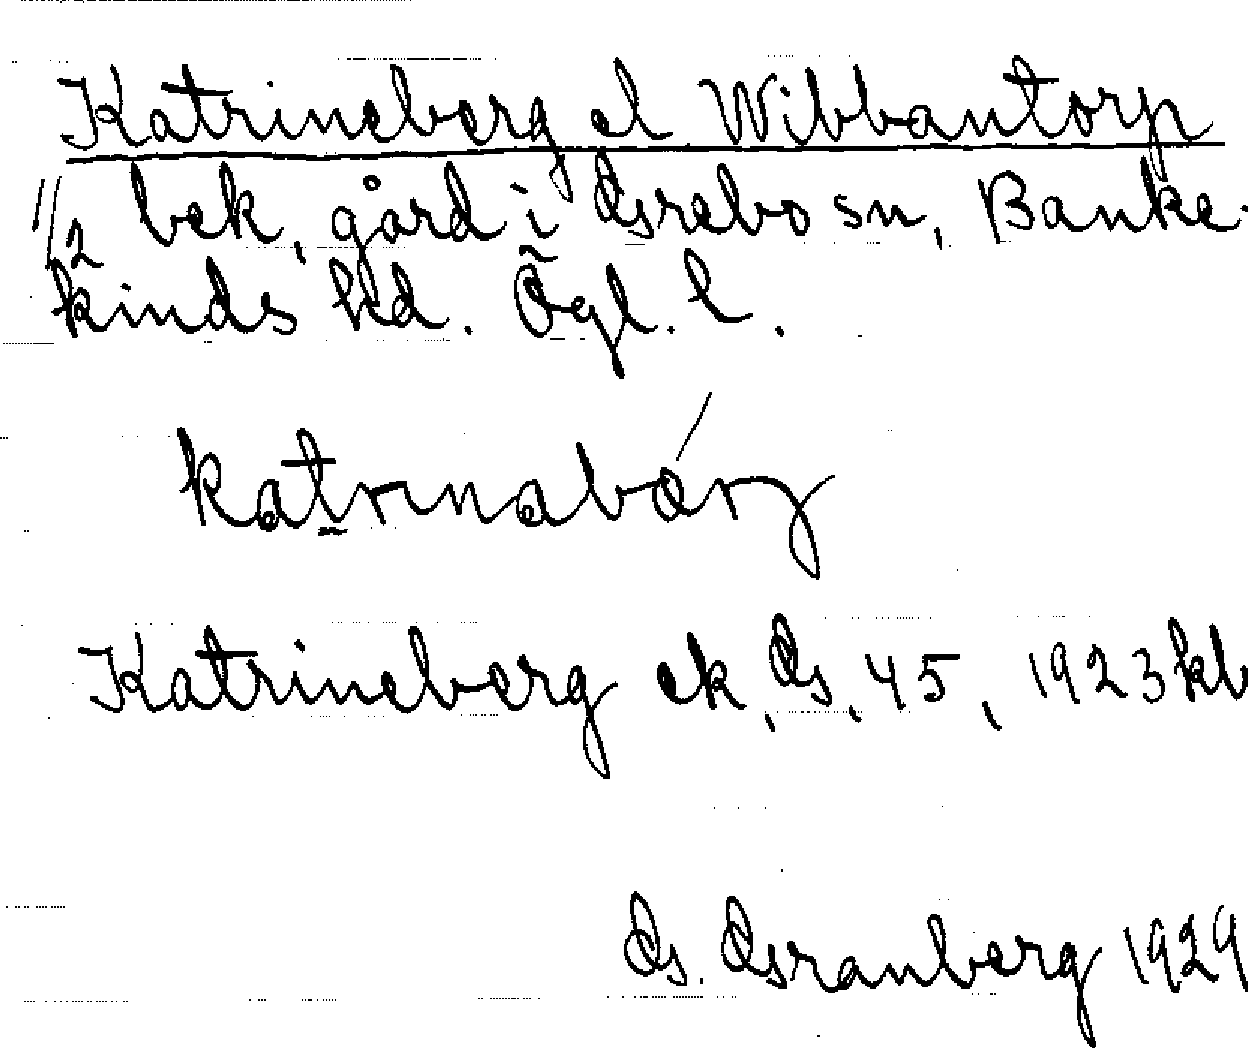 Katrineberg el Wibbantorp
1/2 bek, gård i Grebo sn, Banke-
kinds hd. Ögl. l.
katrinabærg
Katrineberg ek, G, 45, 1923 kb
G. Granberg 1929